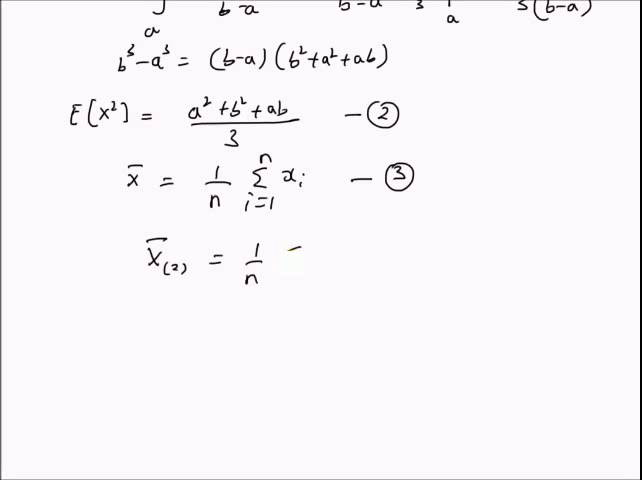 a b-a b-a 3 a 3(b-a)
b³-a³ = (b-a)(b²+a²+ab)
E[X²] = a²+b²+ab / 3 — ②
x̄ = 1/n Σ_{i=1}^{n} x_i — ③
X̄_(2) = 1/n